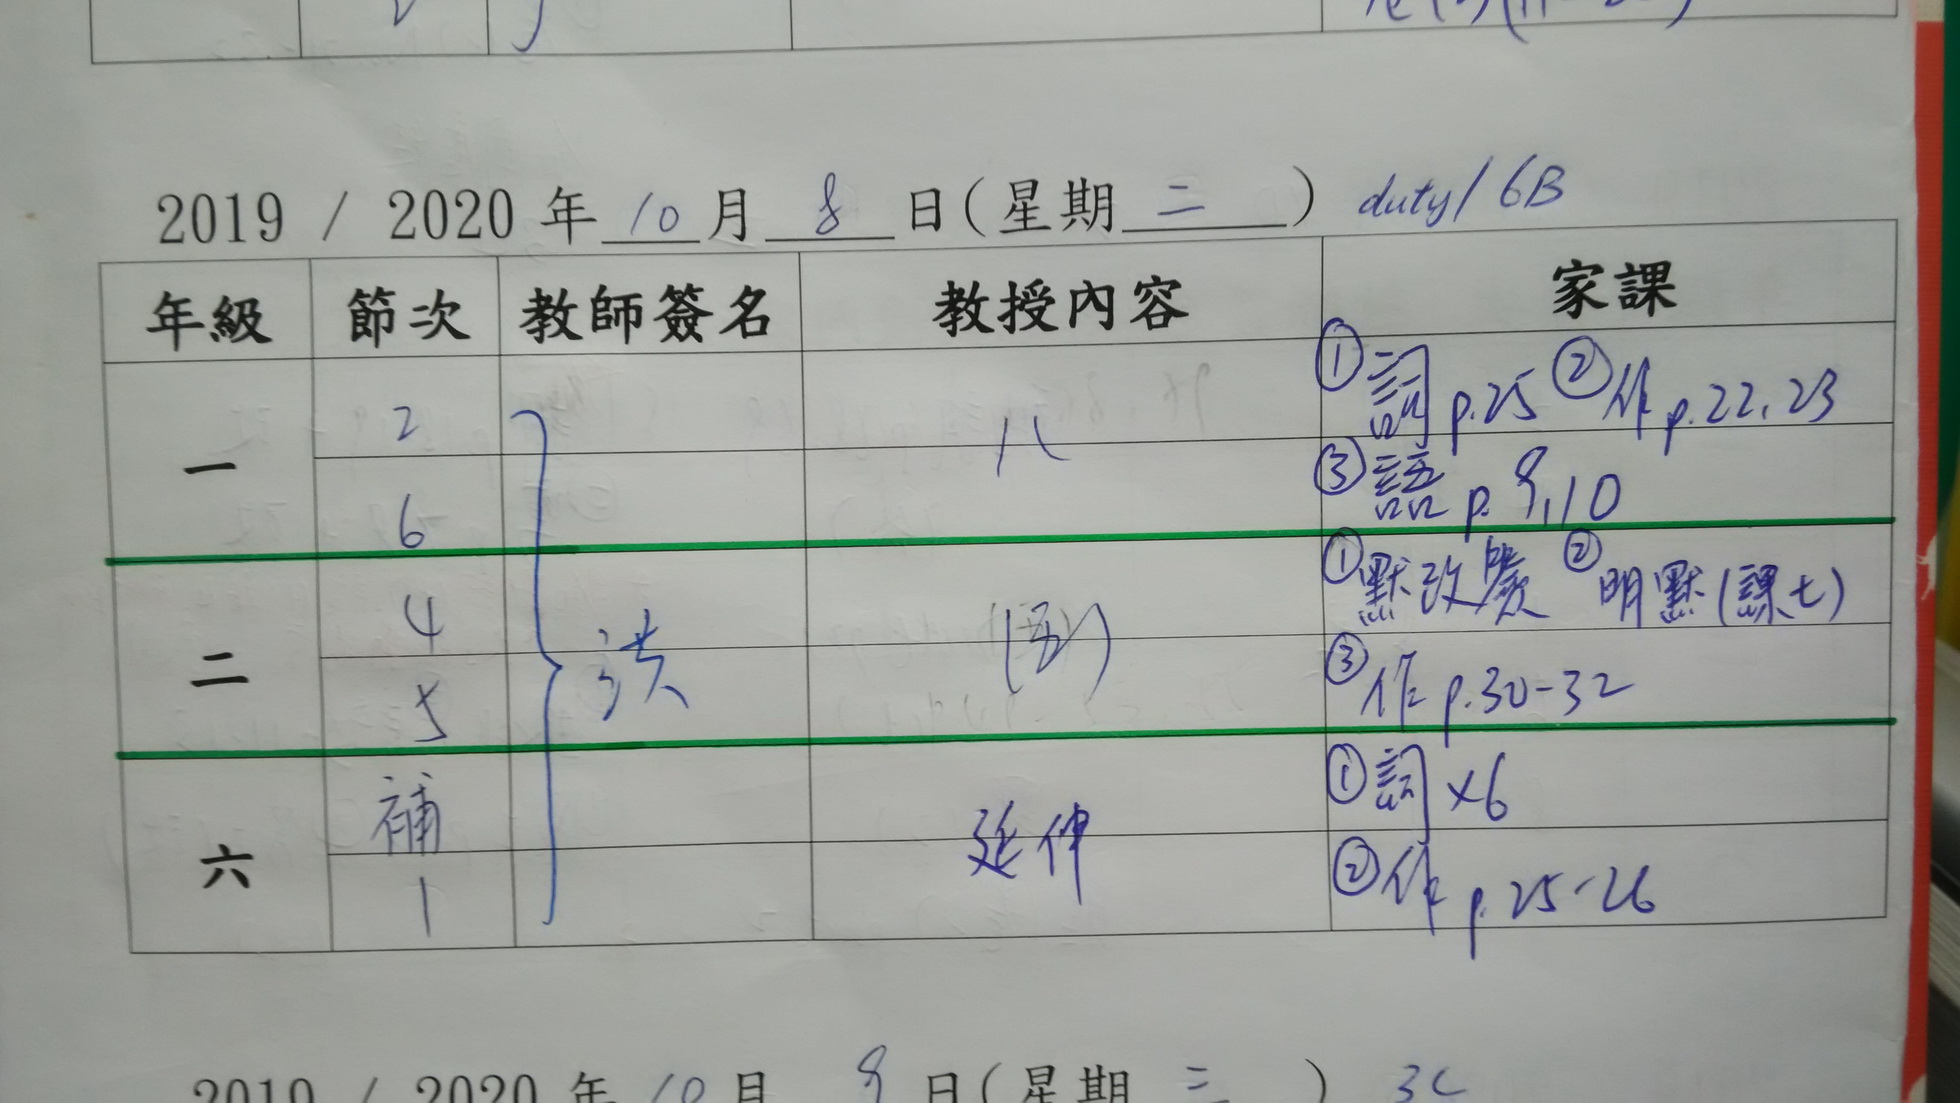 2019 / 2020 年 10 月 8 日(星期 二 ) duty/6B
年級 節次 教師簽名 教授內容 家課
一 2 八 ①詞 p.25 ②作 p.22,23
6 ③語 p. 9,10
二 4 (五) ①默改 ②明默(課七)
5 ③作 p.30-32
六 補 延伸 ①詞 x6
1 ②作 p.25-26
2019 / 2020 年 10 月 9 日(星期 三 ) 3C